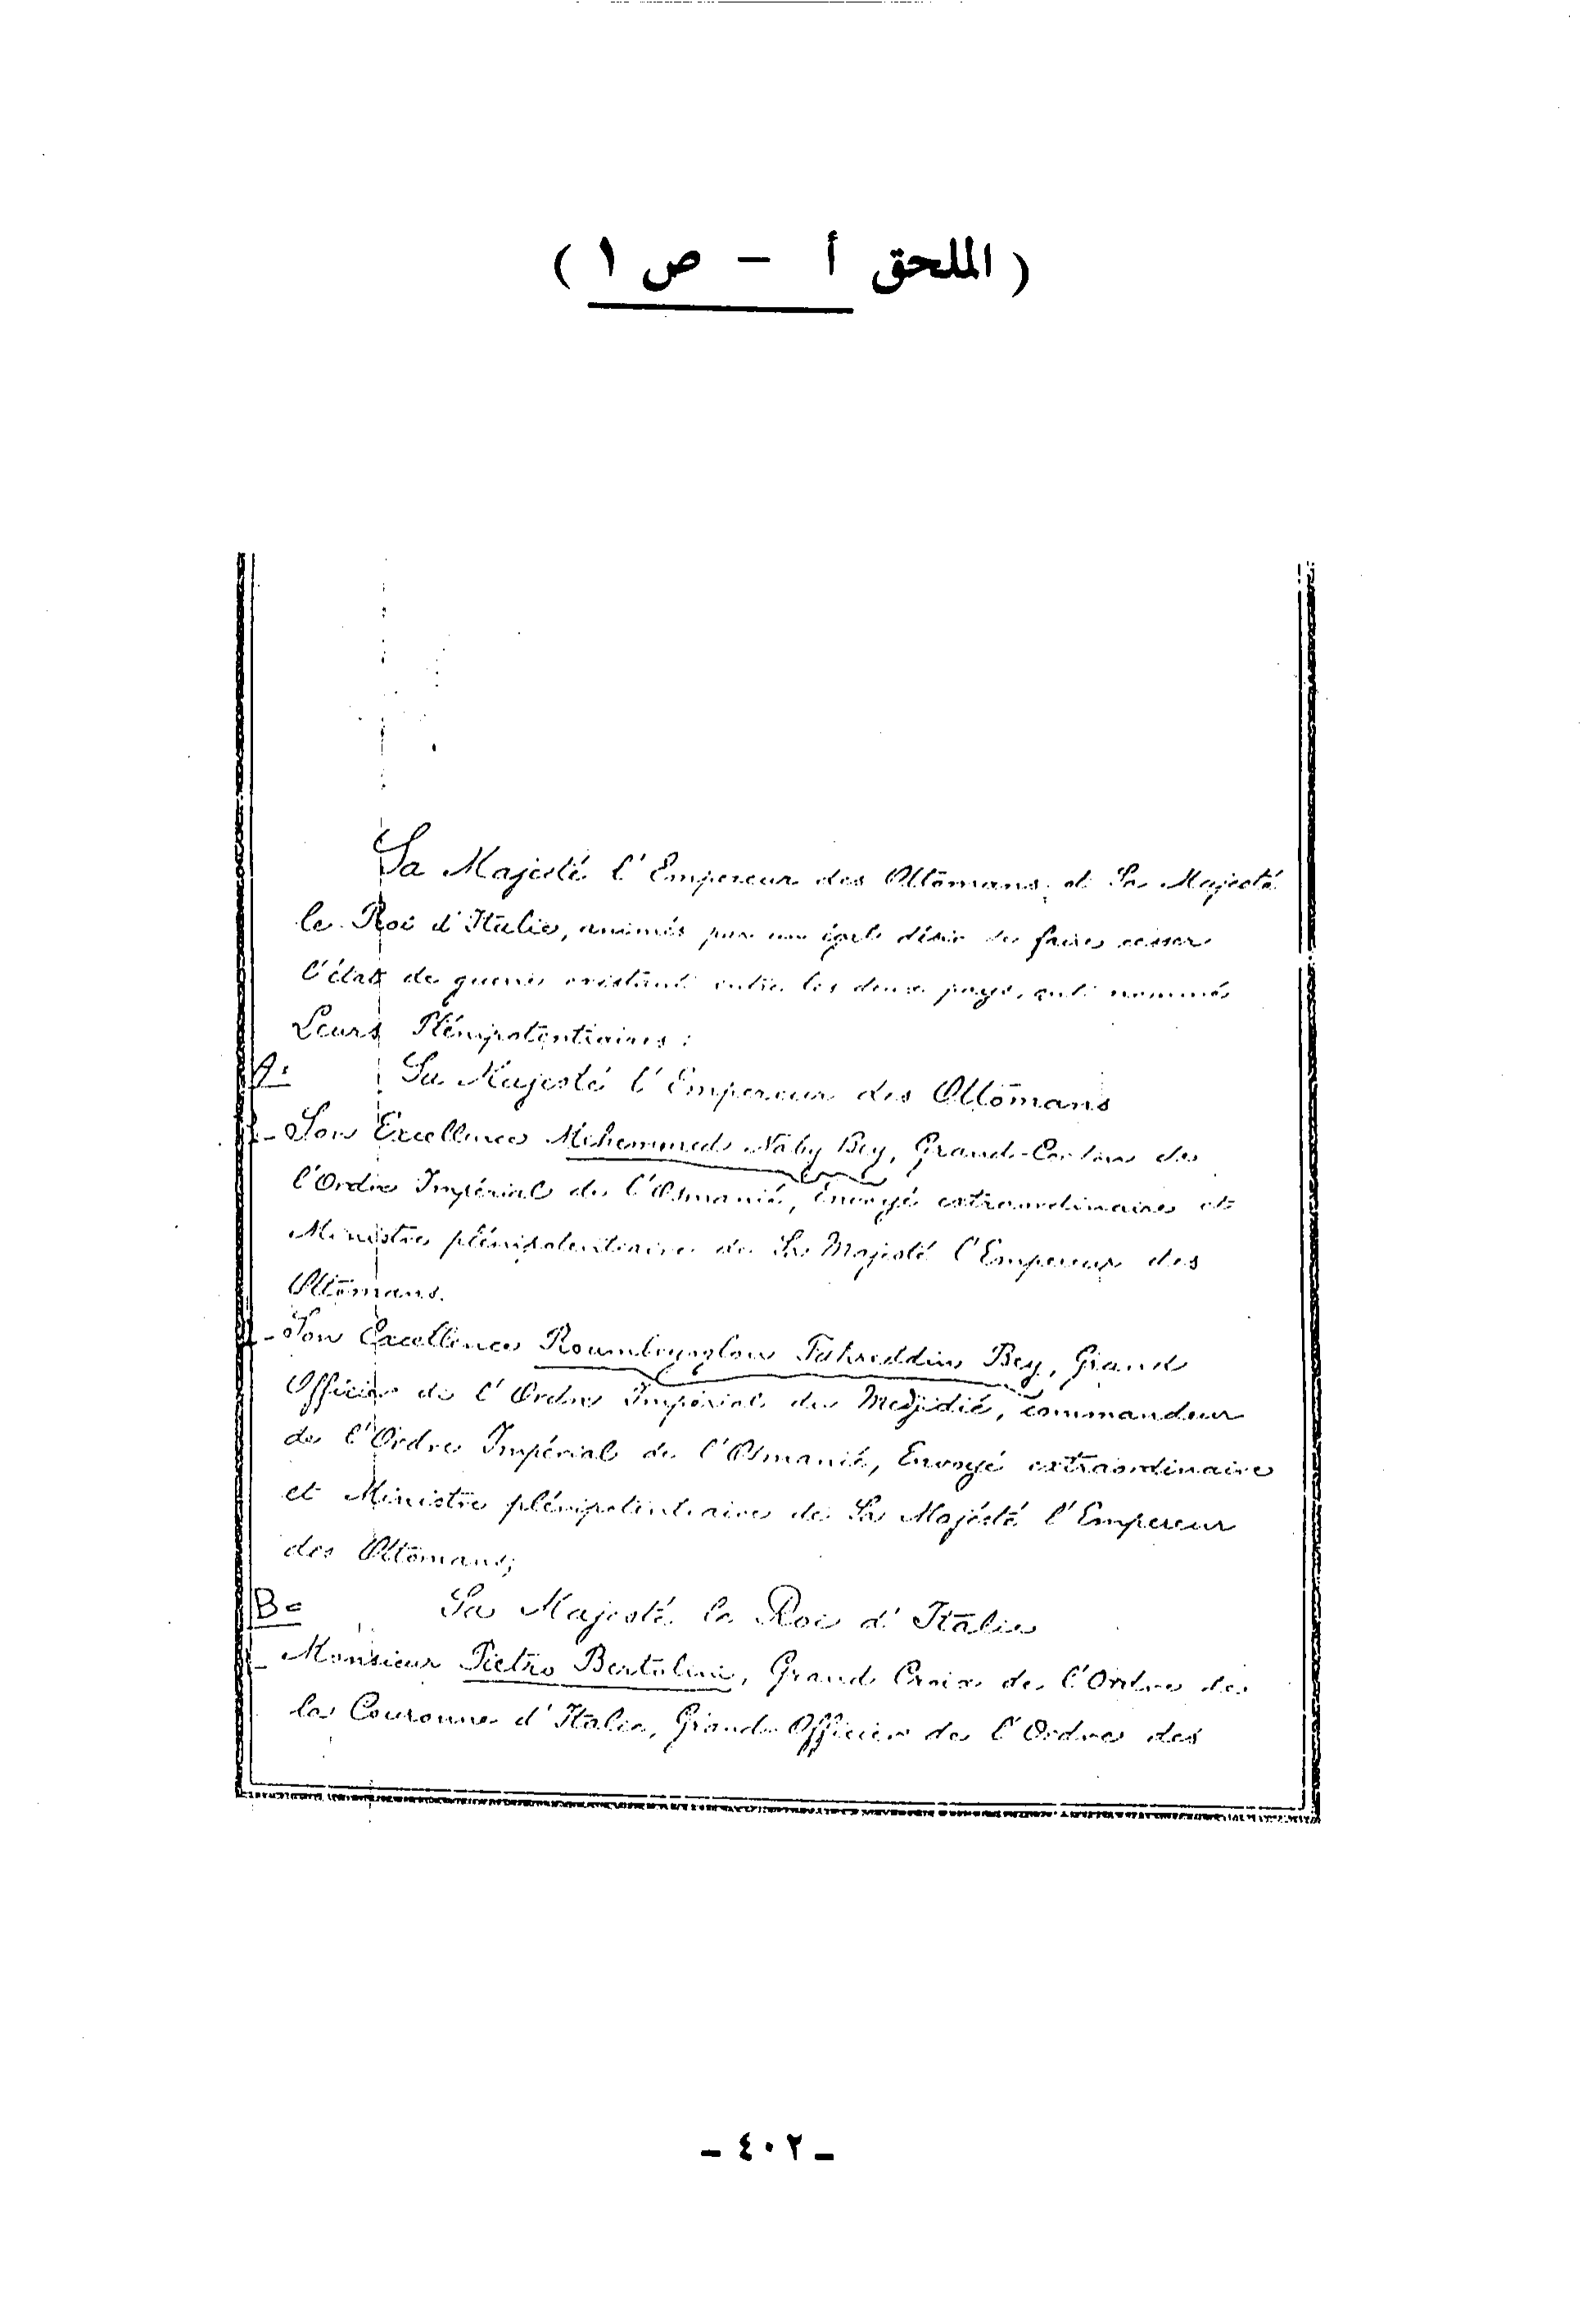 ( الملحق أ - ص ١ )
Sa Majesté l'Empereur des Ottomans et Sa Majesté
le Roi d'Italie, animés par un égal désir de faire cesser
l'état de guerre existant entre les deux pays, ont nommé
Leurs Plénipotentiaires :
A: Sa Majesté l'Empereur des Ottomans
- Son Excellence Mehemmed Naby Bey, Grand-Cordon de
l'Ordre Impérial de l'Osmanié, Envoyé extraordinaire et
Ministre plénipotentiaire de Sa Majesté l'Empereur des
Ottomans.
- Son Excellence Roumbeyoglou Fahreddin Bey, Grand
Officier de l'Ordre Impérial du Medjidié, commandeur
de l'Ordre Impérial de l'Osmanié, Envoyé extraordinaire
et Ministre plénipotentiaire de Sa Majesté l'Empereur
des Ottomans;
B= Sa Majesté le Roi d'Italie
- Monsieur Pietro Bertolini, Grand Croix de l'Ordre de
la Couronne d'Italie, Grand Officier de l'Ordre des
- ٤٠٢ -